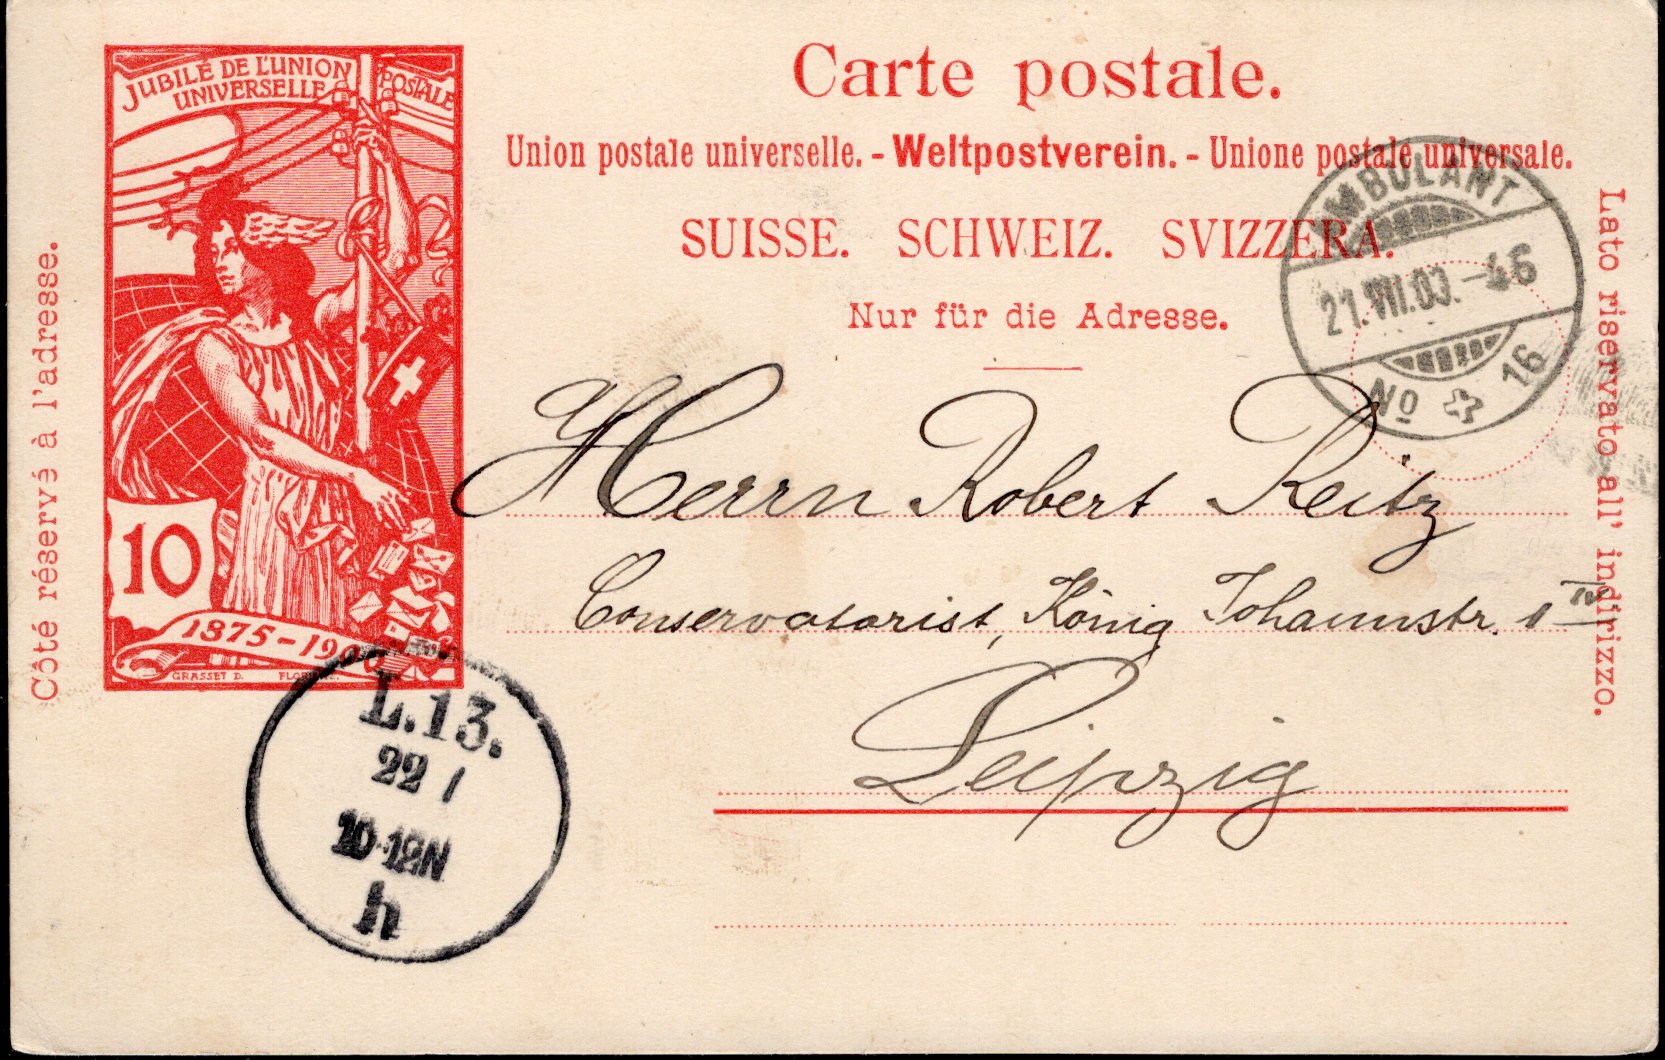 JUBILÉ DE L'UNION POSTALE
UNIVERSELLE
10
1875-1900
GRASSET D.
Carte postale.
Union postale universelle. - Weltpostverein. - Unione postale universale.
SUISSE. SCHWEIZ. SVIZZERA.
Nur für die Adresse.
Côté réservé à l'adresse.
Lato riservato all' indirizzo.
AMBULANT
21.VII.00.-46
No 16
Herrn Robert Reitz
Conservatorist, König Johannstr. 1 IV
Leipzig
L.13.
22 /
10-12N
h